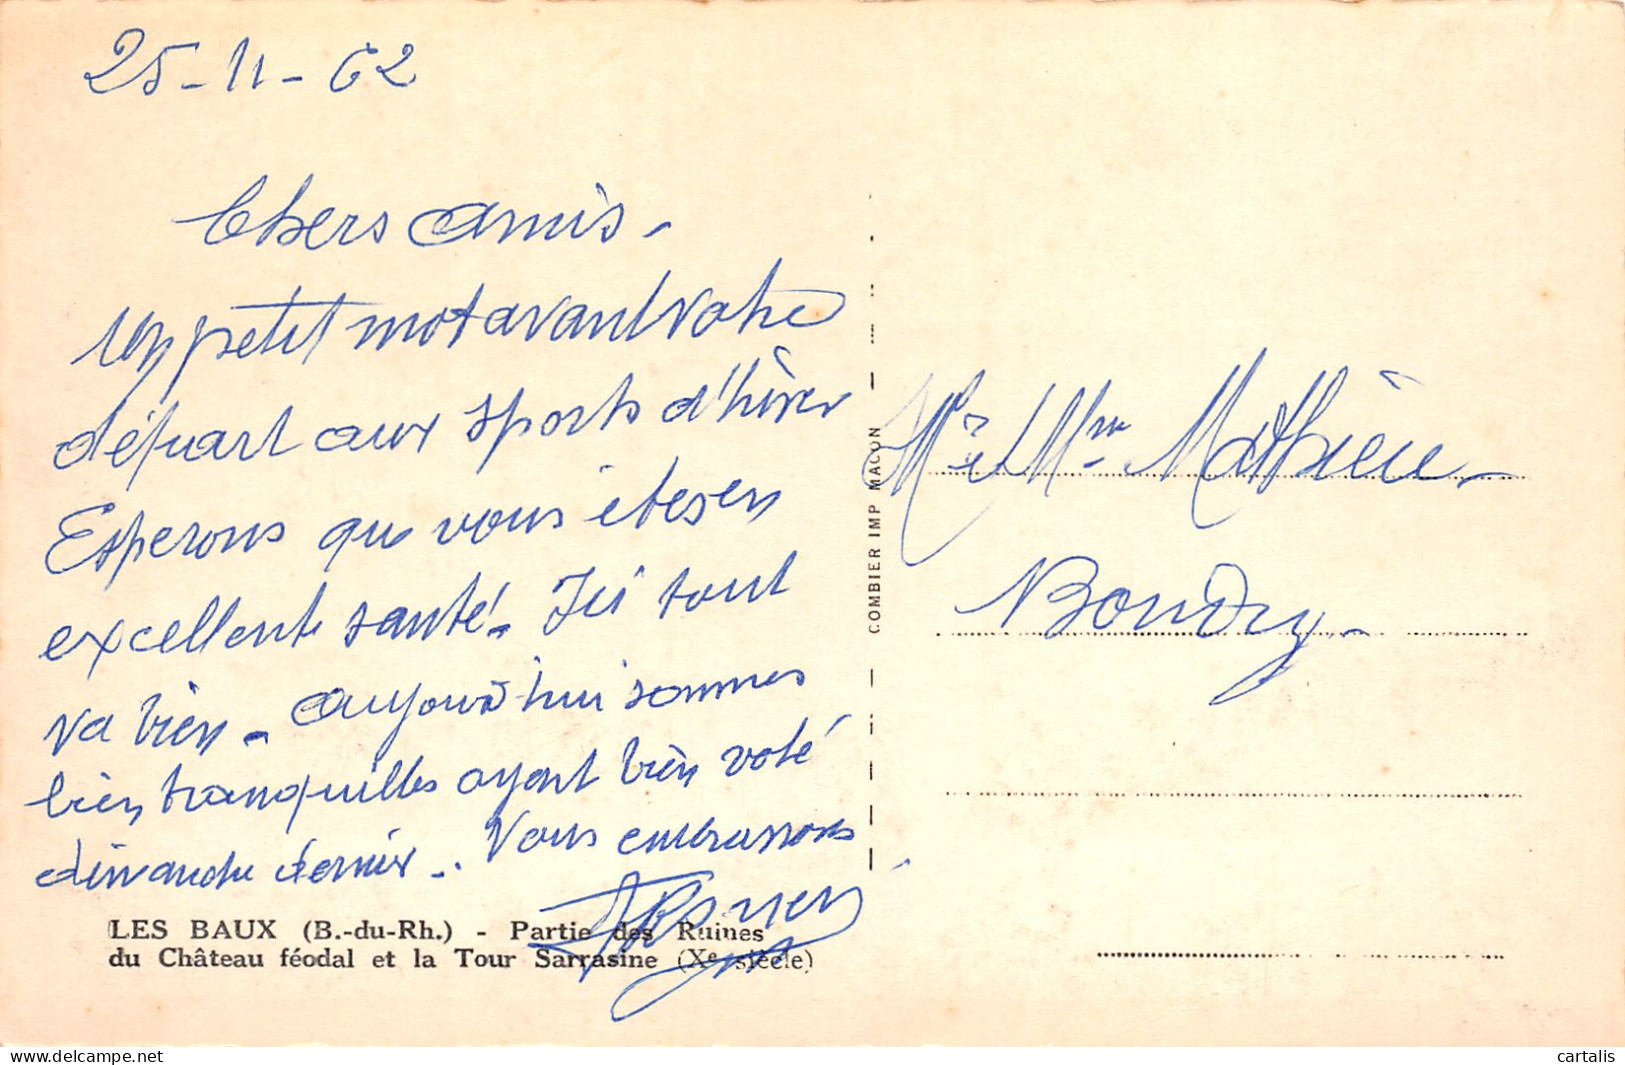 25-11-62
Chers amis -
Un petit mot avant votre
départ aux sports d'hiver
Esperons que vous êtes en
excellente santé. Ici tout
va bien - aujourd'hui sommes
bien tranquilles ayant bien voté
dimanche dernier. Vous embrassons
LES BAUX (B.-du-Rh.) - Partie des Ruines
du Château féodal et la Tour Sarrasine (Xe siècle)
COMBIER IMP MACON
Mr et Mme Mathieu -
Boudry -
cartalis
delcampe.net